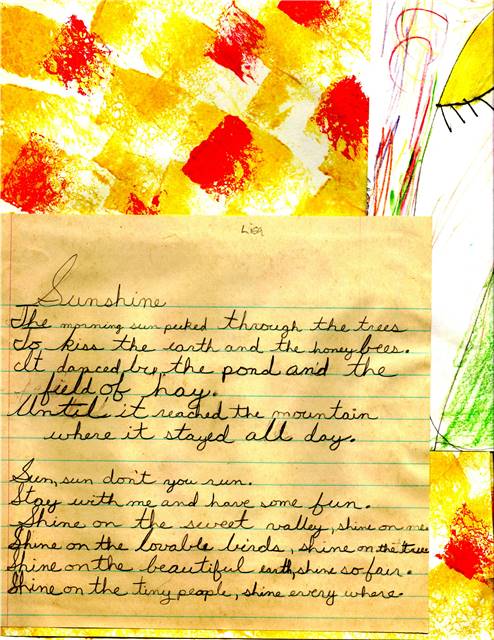 Lisa
Sunshine
The morning sun peeked through the trees
To kiss the earth and the honey bees.
It danced by the pond and the
field of hay.
Until it reached the mountain
where it stayed all day.
Sun, sun don't you run.
Stay with me and have some fun.
Shine on the sweet valley, shine on me
Shine on the lovable birds, shine on the trees
Shine on the beautiful earth, shine so fair.
Shine on the tiny people, shine every where.